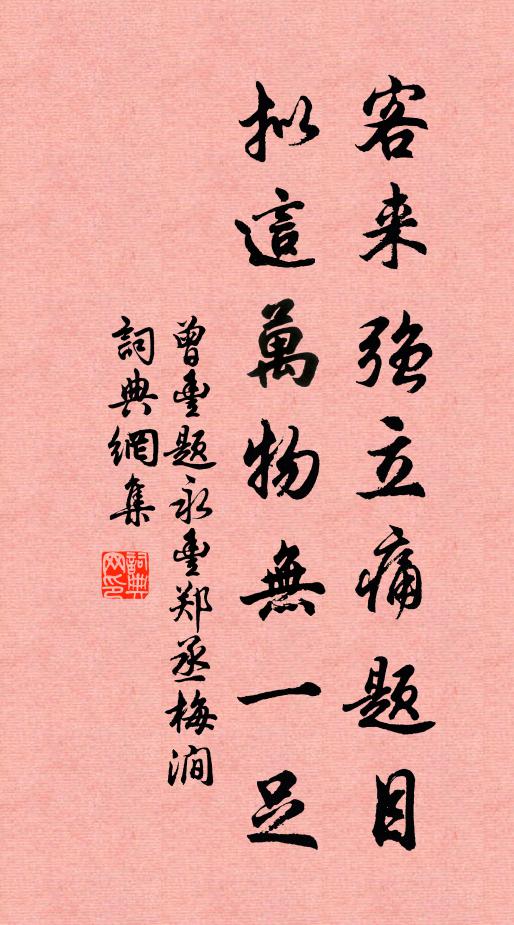 客来强立痛题目
拟這萬物無一足
曾豊题永豊郑丞梅涧
詞典網集
詞典网印